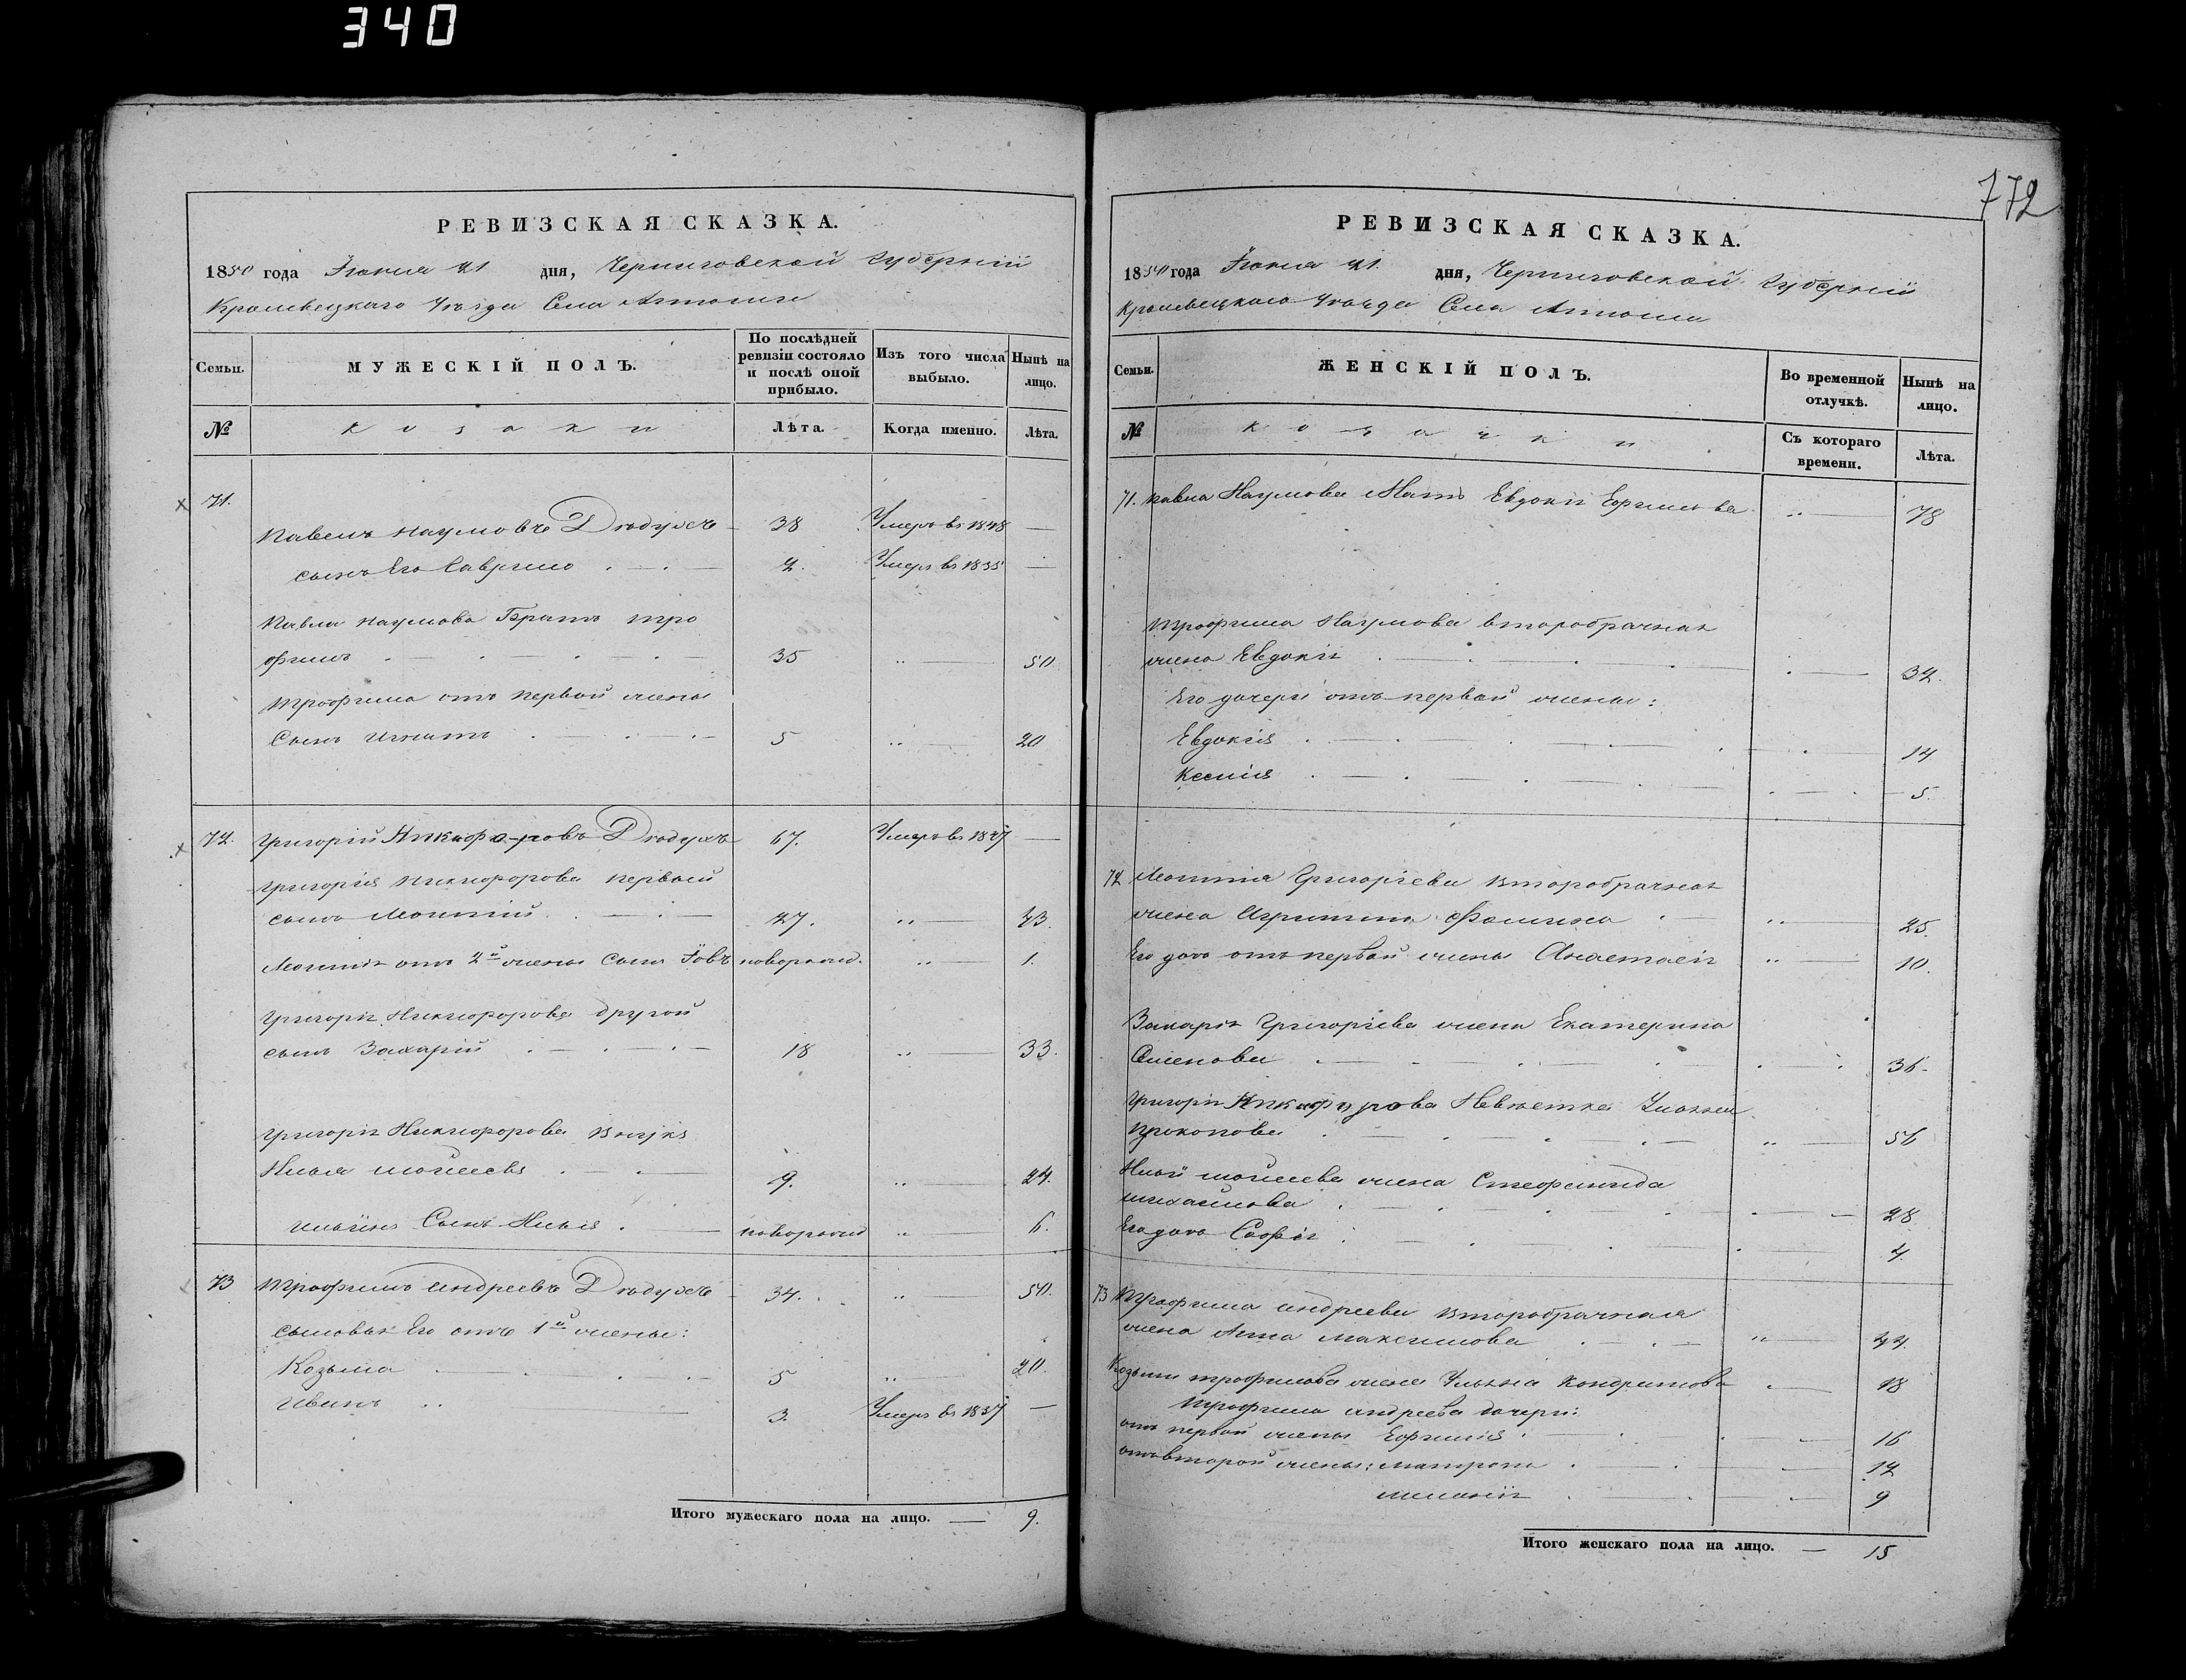 340
772
РЕВИЗСКАЯ СКАЗКА.
1850 года Іюня 21 дня, Черниговской Губерніи
Кролевецкаго Уѣзда Села
Семьи.
МУЖЕСКІЙ ПОЛЪ.
По послѣдней ревизіи состояло и послѣ оной прибыло.
Изъ того числа выбыло.
Нынѣ на лицо.
№
козаки
Лѣта.
Когда именно.
Лѣта.
71.
Павелъ Наумовъ 38 Умеръ въ 1848 —
сынъ Его Гаврило 2. Умеръ въ 1835 —
Павла Наумова Братъ Тро
фимъ 35 „ 50
Трофима отъ первой жены
Сынъ Игнатъ 5 „ 20
72. Григорій Никифоровъ 67. Умеръ въ 1847 —
Григорія Никифорова первый
сынъ 27. „ 43.
отъ 2й жены Сынъ Іовъ новорожд. „ 1.
Григорія Никифорова другой
сынъ Захарій 18 „ 33.
Григорія Никифорова Внукъ
Илья Мойсеевъ 9. „ 24.
Ильинъ Сынъ Илья новорожд „ 6.
73 Трофимъ Андреевъ 34. „ 50.
сыновья Его отъ 1й жены:
Козьма 5 „ 20.
Иванъ 3. Умеръ въ 1837 —
Итого мужескаго пола на лицо. — 9.
РЕВИЗСКАЯ СКАЗКА.
1850 года Іюня 21. дня, Черниговской Губерніи
Кролевецкаго Уѣзда Села
Семьи.
ЖЕНСКІЙ ПОЛЪ.
Во временной отлучкѣ.
Нынѣ на лицо.
№
козачки
Съ котораго времени.
Лѣта.
71. Павла Наумова Мать Евдокія Ефимова „ 78
Трофима Наумова второбрачная
жена Евдокія 32.
Его дочери отъ первой жены:
Евдокія 14
Ксенія 5.
72 Григоріева второбрачная
жена Агрипина Фомина „ 25.
Его дочь отъ первой жены Анастасія „ 10.
Захарія Григоріева жена Екатерина
Семенова 36.
Григорія Никифорова Невѣстка Ульяна
Прокопова „ 56
Ильи Мойсеева жена Стефанида
Михайлова 28
Его дочь Софія 4.
73 Трофима Андреева второбрачная
жена Анна Максимова „ 44.
Козьмы Трофимова жена Ульяна Кондратова 18
Трофима Андреева дочери:
отъ первой жены Ефимія 16
отъ второй жены: Матрона 12
Меланія 9
Итого женскаго пола на лицо. — 15